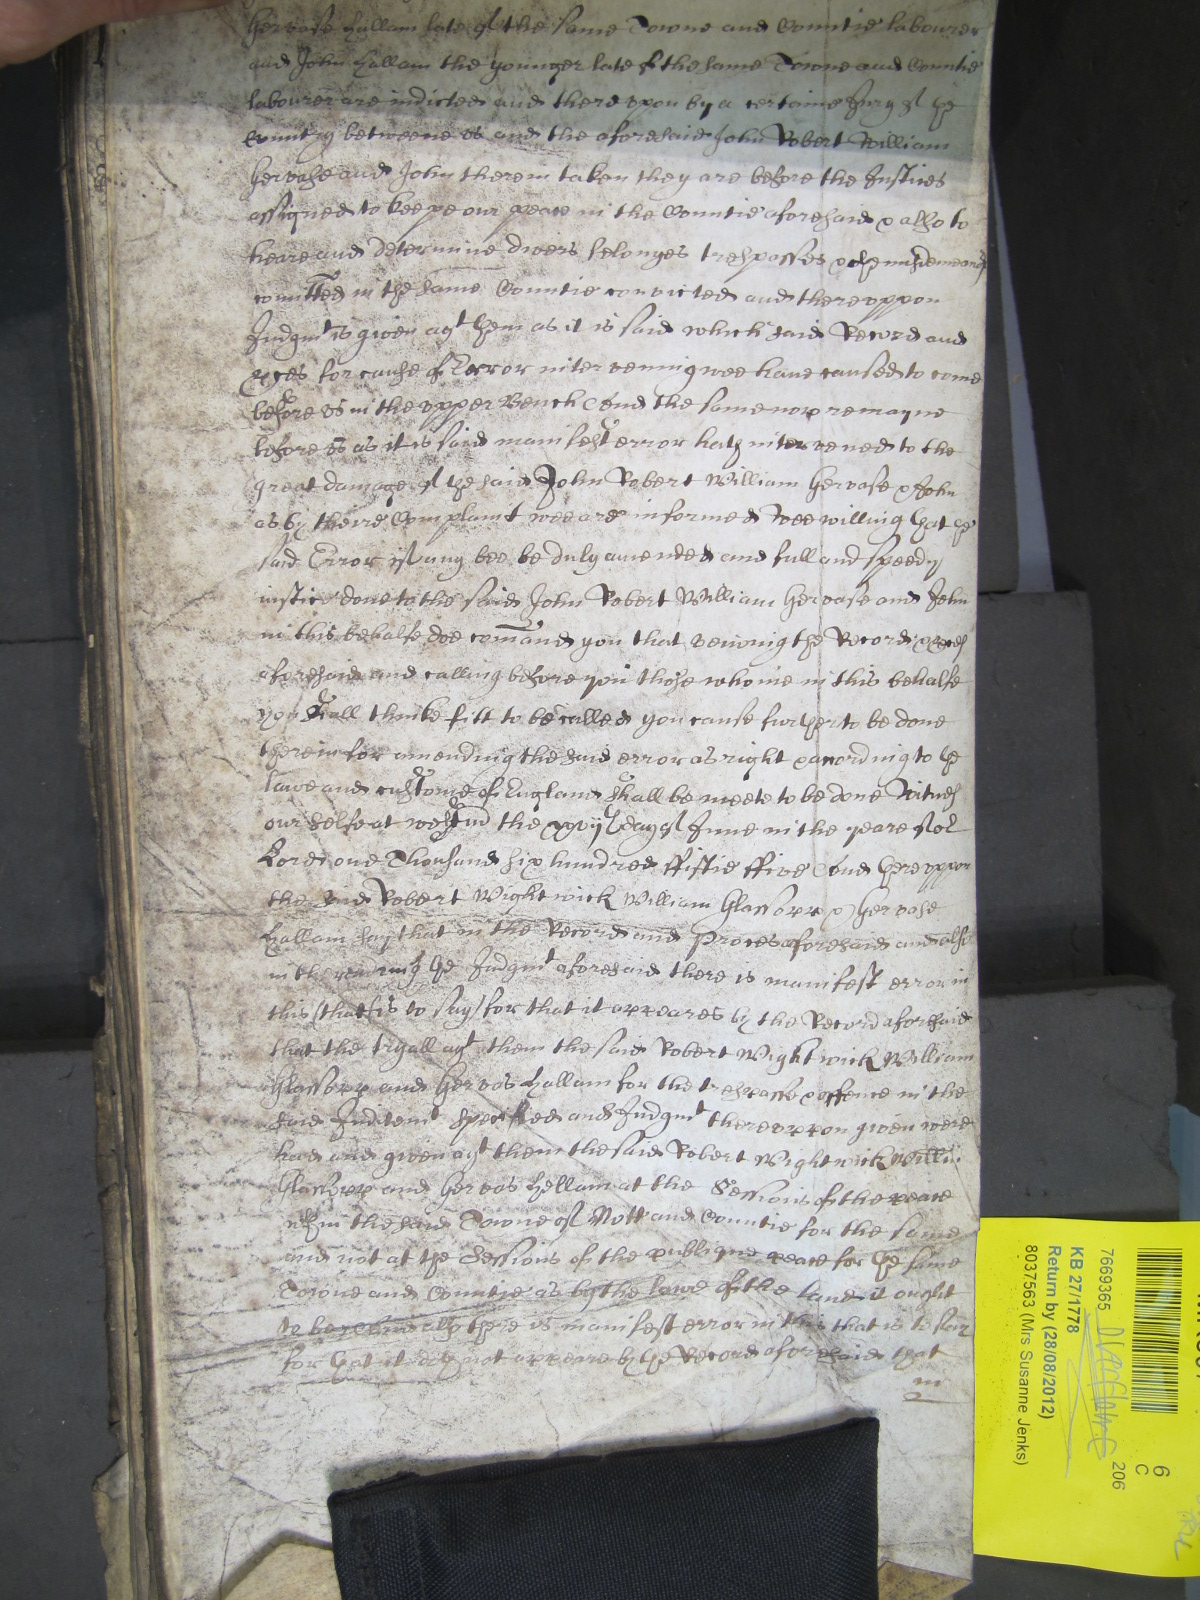 Gervase Hallam late of the same Towne and Countie labourer
and John Hallam the younger late of the same Towne and Countie
labourer are indicted and thereupon by a certaine Jury of the
Country betweene us and the aforesaid John Robert William
Gervase and John therein taken they are before the Justices
assigned to keepe our peace in the Countie aforesaid & also to
heare and determine divers felonyes trespasses & other misdemeanors
comitted in the same Countie convicted and thereuppon
Judgmt is given agt them as it is said which said Record and
pces for cause of Error intervening wee have caused to come
before us in the upper Bench And the same now remayne
before us as it is said manifest error hath intervened to the
great damage of the said John Robert William Gervase & John
as by theire Complaint wee are informed Wee willing that the
said Error if any bee be duly amended and full and speedy
justice done to the said John Robert William Gervase and John
in this behalfe doe comand you that veiwing the Record & pces
aforesaid and calling before you those whome in this behalfe
you shall thinke fitt to be called you cause further to be done
therein for amending the said error as right & according to the
lawe and custome of England shall be meete to be done Witnes
our selfe at Westm the xviijth day of June in the yeare of or
Lord one Thousand six hundred ffiftie ffive And hereuppon
the said Robert Wightwick William Glassopp & Gervase
Hallam say that in the Record and Proces aforesaid and also
in the rendring the Judgmt aforesaid there is manifest error in
this (that is to say) for that it appeares by the Record aforesaid
that the tryall agt them the said Robert Wightwick William
Glassopp and Gervas Hallam for the trespasse & offence in the
said Inditemt specified and Judgmt thereuppon given were
had and given agt them the said Robert Wightwick Willm
Glassopp and Gervas Hallam at the Sessions of the peace
in the said Towne of Nott and Countie for the same
and not at the Sessions of the publique peace for the same
Towne and Countie as by the lawe of the land it ought
to be there is manifest error in this that is to say
for that it doth not appeare by the Record aforesaid that
in
7669365
206
KB 27/1778
Return by (28/08/2012)
8037563 (Mrs Susanne Jenks)
6
C